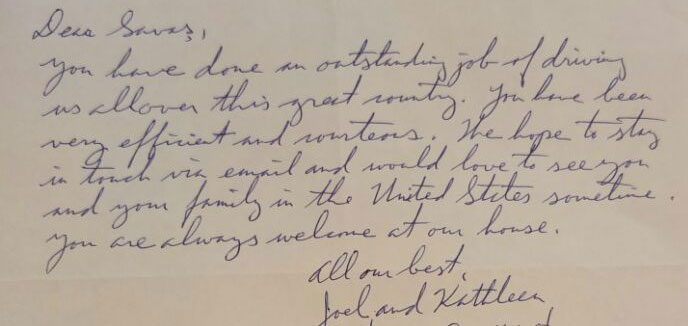 Dear Savaş,
You have done an outstanding job of driving
us all over this great country. You have been
very efficient and courteous. We hope to stay
in touch via email and would love to see you
and your family in the United States sometime.
You are always welcome at our house.
All our best,
Joel and Kathleen